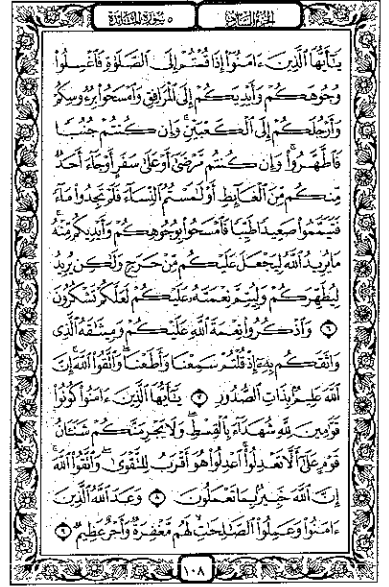 الجزء السادس ٥ سورة المائدة
يَٰٓأَيُّهَا ٱلَّذِينَ ءَامَنُوٓاْ إِذَا قُمۡتُمۡ إِلَى ٱلصَّلَوٰةِ فَٱغۡسِلُواْ
وُجُوهَكُمۡ وَأَيۡدِيَكُمۡ إِلَى ٱلۡمَرَافِقِ وَٱمۡسَحُواْ بِرُءُوسِكُمۡ
وَأَرۡجُلَكُمۡ إِلَى ٱلۡكَعۡبَيۡنِۚ وَإِن كُنتُمۡ جُنُبٗا
فَٱطَّهَّرُواْۚ وَإِن كُنتُم مَّرۡضَىٰٓ أَوۡ عَلَىٰ سَفَرٍ أَوۡ جَآءَ أَحَدٞ
مِّنكُم مِّنَ ٱلۡغَآئِطِ أَوۡ لَٰمَسۡتُمُ ٱلنِّسَآءَ فَلَمۡ تَجِدُواْ مَآءٗ
فَتَيَمَّمُواْ صَعِيدٗا طَيِّبٗا فَٱمۡسَحُواْ بِوُجُوهِكُمۡ وَأَيۡدِيكُم مِّنۡهُۚ
مَا يُرِيدُ ٱللَّهُ لِيَجۡعَلَ عَلَيۡكُم مِّنۡ حَرَجٖ وَلَٰكِن يُرِيدُ
لِيُطَهِّرَكُمۡ وَلِيُتِمَّ نِعۡمَتَهُۥ عَلَيۡكُمۡ لَعَلَّكُمۡ تَشۡكُرُونَ
٦ وَٱذۡكُرُواْ نِعۡمَةَ ٱللَّهِ عَلَيۡكُمۡ وَمِيثَٰقَهُ ٱلَّذِي
وَاثَقَكُم بِهِۦٓ إِذۡ قُلۡتُمۡ سَمِعۡنَا وَأَطَعۡنَاۖ وَٱتَّقُواْ ٱللَّهَۚ إِنَّ
ٱللَّهَ عَلِيمُۢ بِذَاتِ ٱلصُّدُورِ ٧ يَٰٓأَيُّهَا ٱلَّذِينَ ءَامَنُواْ كُونُواْ
قَوَّٰمِينَ لِلَّهِ شُهَدَآءَ بِٱلۡقِسۡطِۖ وَلَا يَجۡرِمَنَّكُمۡ شَنَـَٔانُ
قَوۡمٍ عَلَىٰٓ أَلَّا تَعۡدِلُواْۚ ٱعۡدِلُواْ هُوَ أَقۡرَبُ لِلتَّقۡوَىٰۖ وَٱتَّقُواْ ٱللَّهَۚ
إِنَّ ٱللَّهَ خَبِيرُۢ بِمَا تَعۡمَلُونَ ٨ وَعَدَ ٱللَّهُ ٱلَّذِينَ
ءَامَنُواْ وَعَمِلُواْ ٱلصَّٰلِحَٰتِ لَهُم مَّغۡفِرَةٞ وَأَجۡرٌ عَظِيمٞ ٩
١٠٨